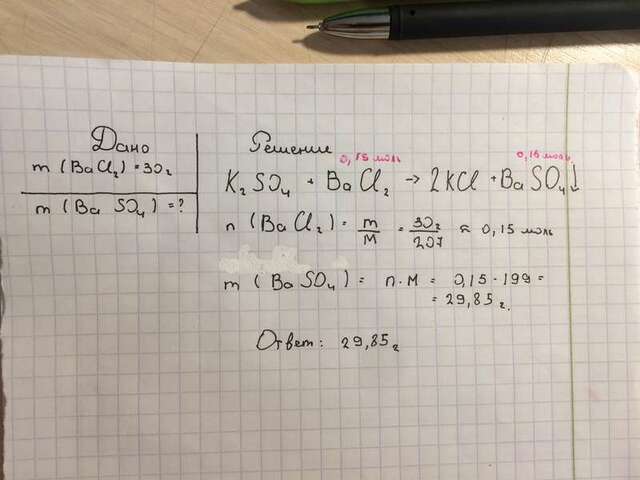 Дано
m (BaCl₂) = 30г
m (BaSO₄) = ?
Решение
0,15 моль
0,15 моль
K₂SO₄ + BaCl₂ → 2KCl + BaSO₄↓
n (BaCl₂) = m/M = 30г/207 ≈ 0,15 моль
m (BaSO₄) = n·M = 0,15·199 =
= 29,85 г.
Ответ: 29,85г